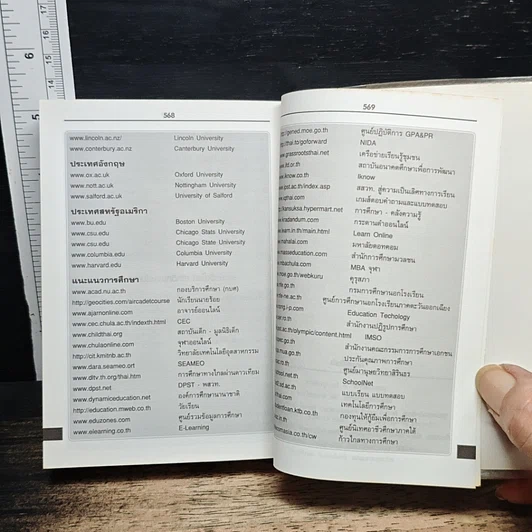 568
www.lincoln.ac.nz/ Lincoln University
www.conterbury.ac.nz Canterbury University
ประเทศอังกฤษ
www.ox.ac.uk Oxford University
www.nott.ac.uk Nottingham University
www.salford.ac.uk University of Salford
ประเทศสหรัฐอเมริกา
www.bu.edu Boston University
www.csu.edu Chicago Stats University
www.csu.edu Chicago State University
www.columbia.edu Columbia University
www.harvard.edu Harvard University
แนะแนวการศึกษา
www.acad.nu.ac.th กองบริการศึกษา (กบศ)
http://geocities.com/aircadetcourse นักเรียนนายร้อย
www.ajarnonline.com อาจารย์ออนไลน์
www.cec.chula.ac.th/indexth.html CEC
www.childthai.org สถาบันเด็ก - มูลนิธิเด็ก
www.chulaonline.com จุฬาออนไลน์
http://cit.kmitnb.ac.th วิทยาลัยเทคโนโลยีอุตสาหกรรม
www.dara.seameo.ort SEAMEO
www.dltv.th.org/thai.htm การศึกษาทางไกลผ่านดาวเทียม
www.dpst.net DPST - พสวท.
www.dynamiceducation.net องค์การศึกษานานาชาติ
http://education.mweb.co.th วัยเรียน
www.eduzones.com ศูนย์รวมข้อมูลการศึกษา
www.elearning.co.th E-Learning
569
http://gened.moe.go.th ศูนย์ปฏิบัติการ GPA&PR
NIDA
เครือข่ายเรียนรู้ชุมชน
สถาบันอนาคตศึกษาเพื่อการพัฒนา
Iknow
สสวท. สู่ความเป็นเลิศทางการเรียน
เกมส์ตอบคำถามและแบบทดสอบ
การศึกษา - คลังความรู้
กระดานดำออนไลน์
Learn Online
มหาลัยดอทคอม
สำนักการศึกษามวลชน
MBA จุฬา
คุรุสภา
กรมการศึกษานอกโรงเรียน
ศูนย์การศึกษานอกโรงเรียนภาคตะวันออกเฉียง
Education Techology
สำนักงานปฏิรูปการศึกษา
IMSO
สำนักงานคณะกรรมการการศึกษาเอกชน
ประกันคุณภาพการศึกษา
ศูนย์มานุษยวิทยาสิรินธร
SchoolNet
แบบเรียน แบบทดสอบ
เทคโนโลยีการศึกษา
กองทุนให้กู้ยืมเพื่อการศึกษา
ศูนย์นิเทศอาชีวศึกษาภาคใต้
ก้าวไกลทางการศึกษา